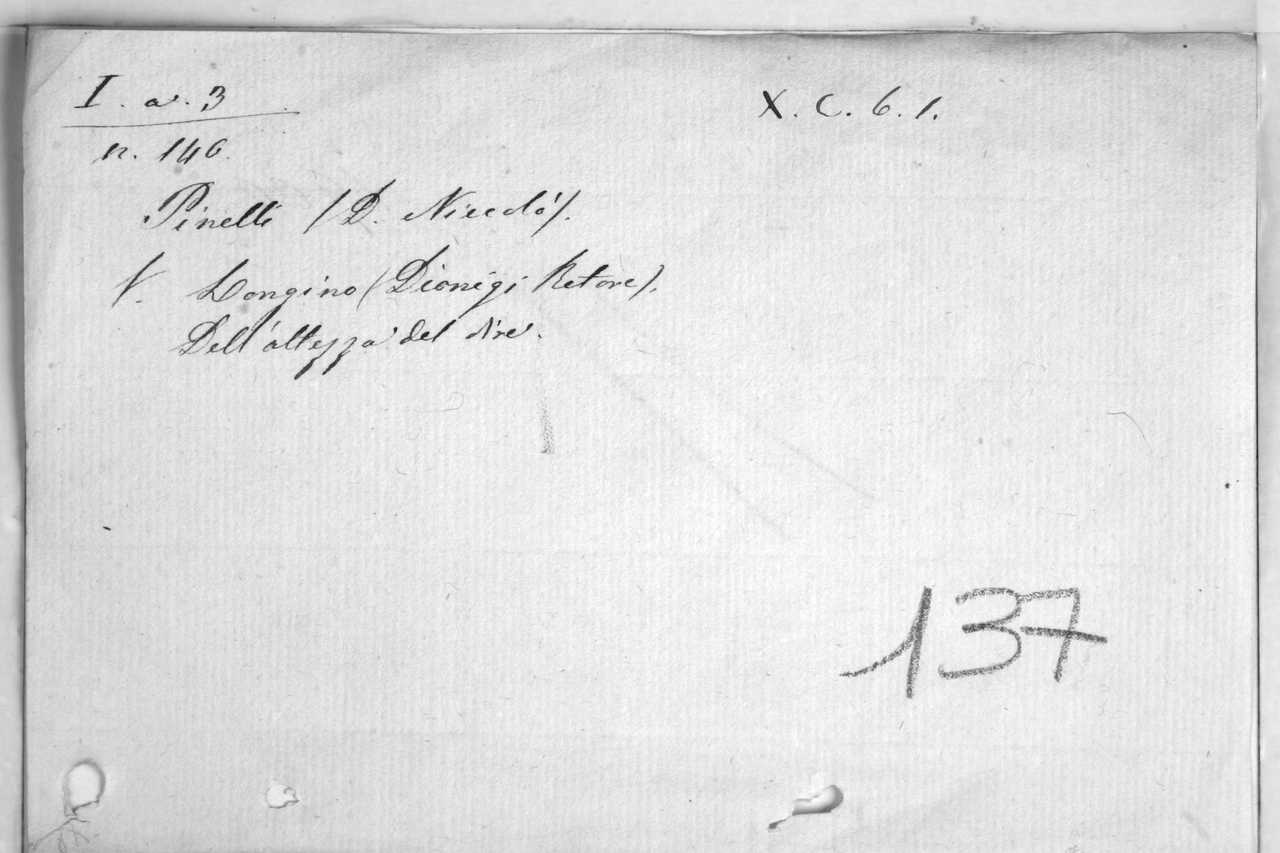 I. a. 3
X. C. 6. 1.
n. 146.
Pinelli (D. Niccolò).
V. Longino (Dionigi Retore).
Dell'altezza del dire.
137